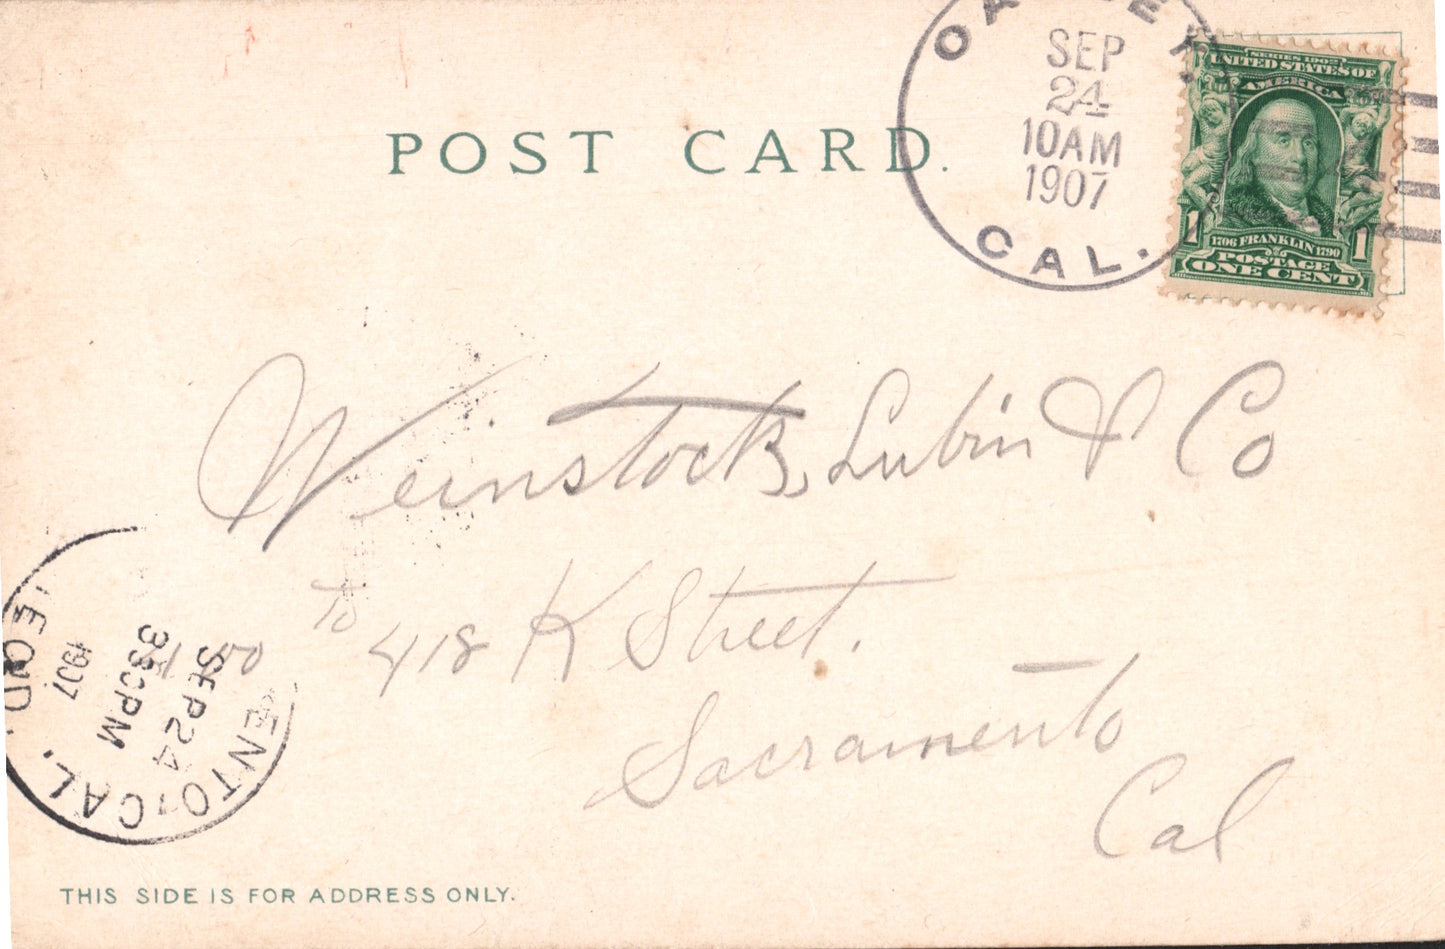 POST CARD.
OAKLEY.
SEP
24
10AM
1907
CAL.
SERIES 1902
UNITED STATES OF
AMERICA
1 1
1706 FRANKLIN 1790
POSTAGE
ONE CENT
Weinstock, Lubin & Co
to 418 K Street.
Sacramento
Cal
ENTO, CAL.
SEP 24
330PM
1907
REC'D.
THIS SIDE IS FOR ADDRESS ONLY.